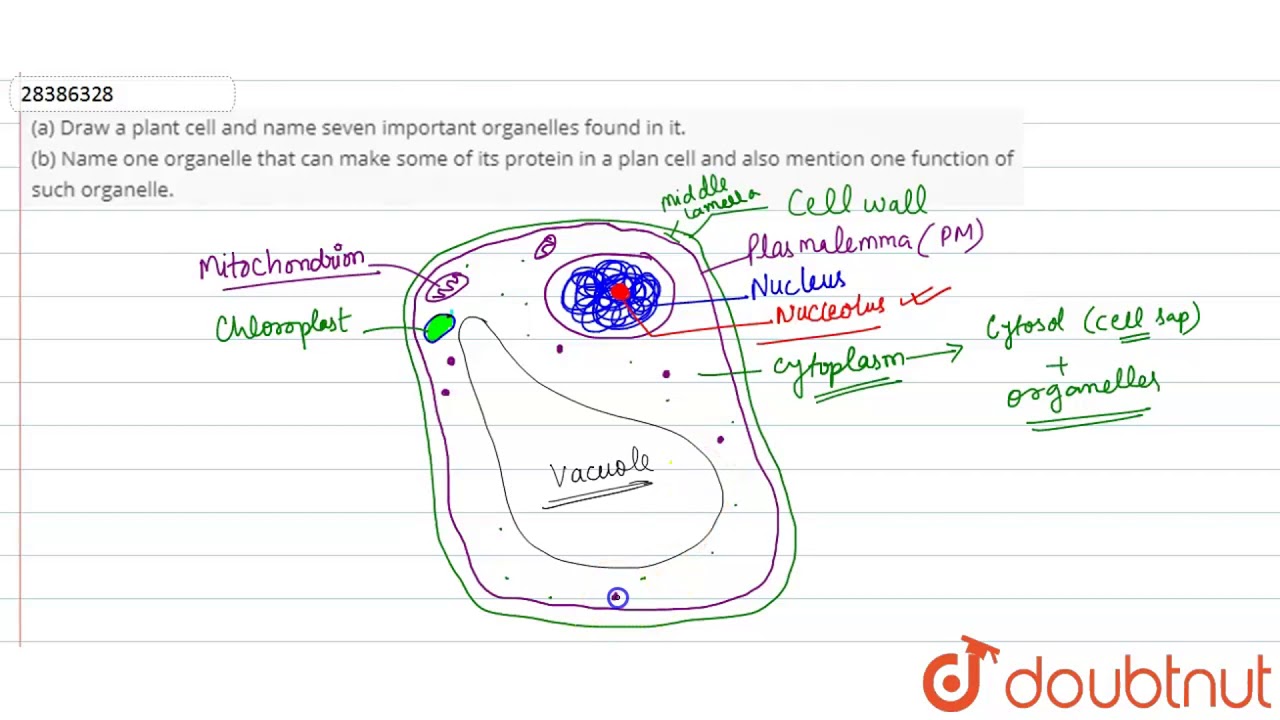 28386328
(a) Draw a plant cell and name seven important organelles found in it.
(b) Name one organelle that can make some of its protein in a plan cell and also mention one function of
such organelle.
middle
lamella
Cell wall
Plasmalemma (PM)
Mitochondrion
Nucleus
Nucleolus
Chloroplast
Cytosol (cell sap)
+
organelles
cytoplasm
Vacuole
doubtnut